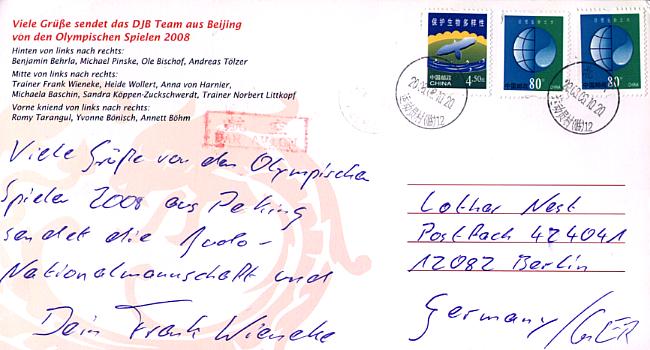 Viele Grüße sendet das DJB Team aus Beijing
von den Olympischen Spielen 2008
Hinten von links nach rechts:
Benjamin Behrla, Michael Pinske, Ole Bischof, Andreas Tölzer
Mitte von links nach rechts:
Trainer Frank Wieneke, Heide Wollert, Anna von Harnier,
Michaela Baschin, Sandra Köppen-Zuckschwerdt, Trainer Norbert Littkopf
Vorne kniend von links nach rechts:
Romy Tarangul, Yvonne Bönisch, Annett Böhm
PAR AVION
Viele Grüße von den Olympischen
Spielen 2008 aus Peking
sendet die Judo-
Nationalmannschaft und
Dein Frank Wieneke
保护生物多样性
中国邮政
CHINA
4.50元
中国邮政
CHINA
80分
中国邮政
CHINA
80分
Lothar Nest
Postfach 424041
12082 Berlin
Germany/GER